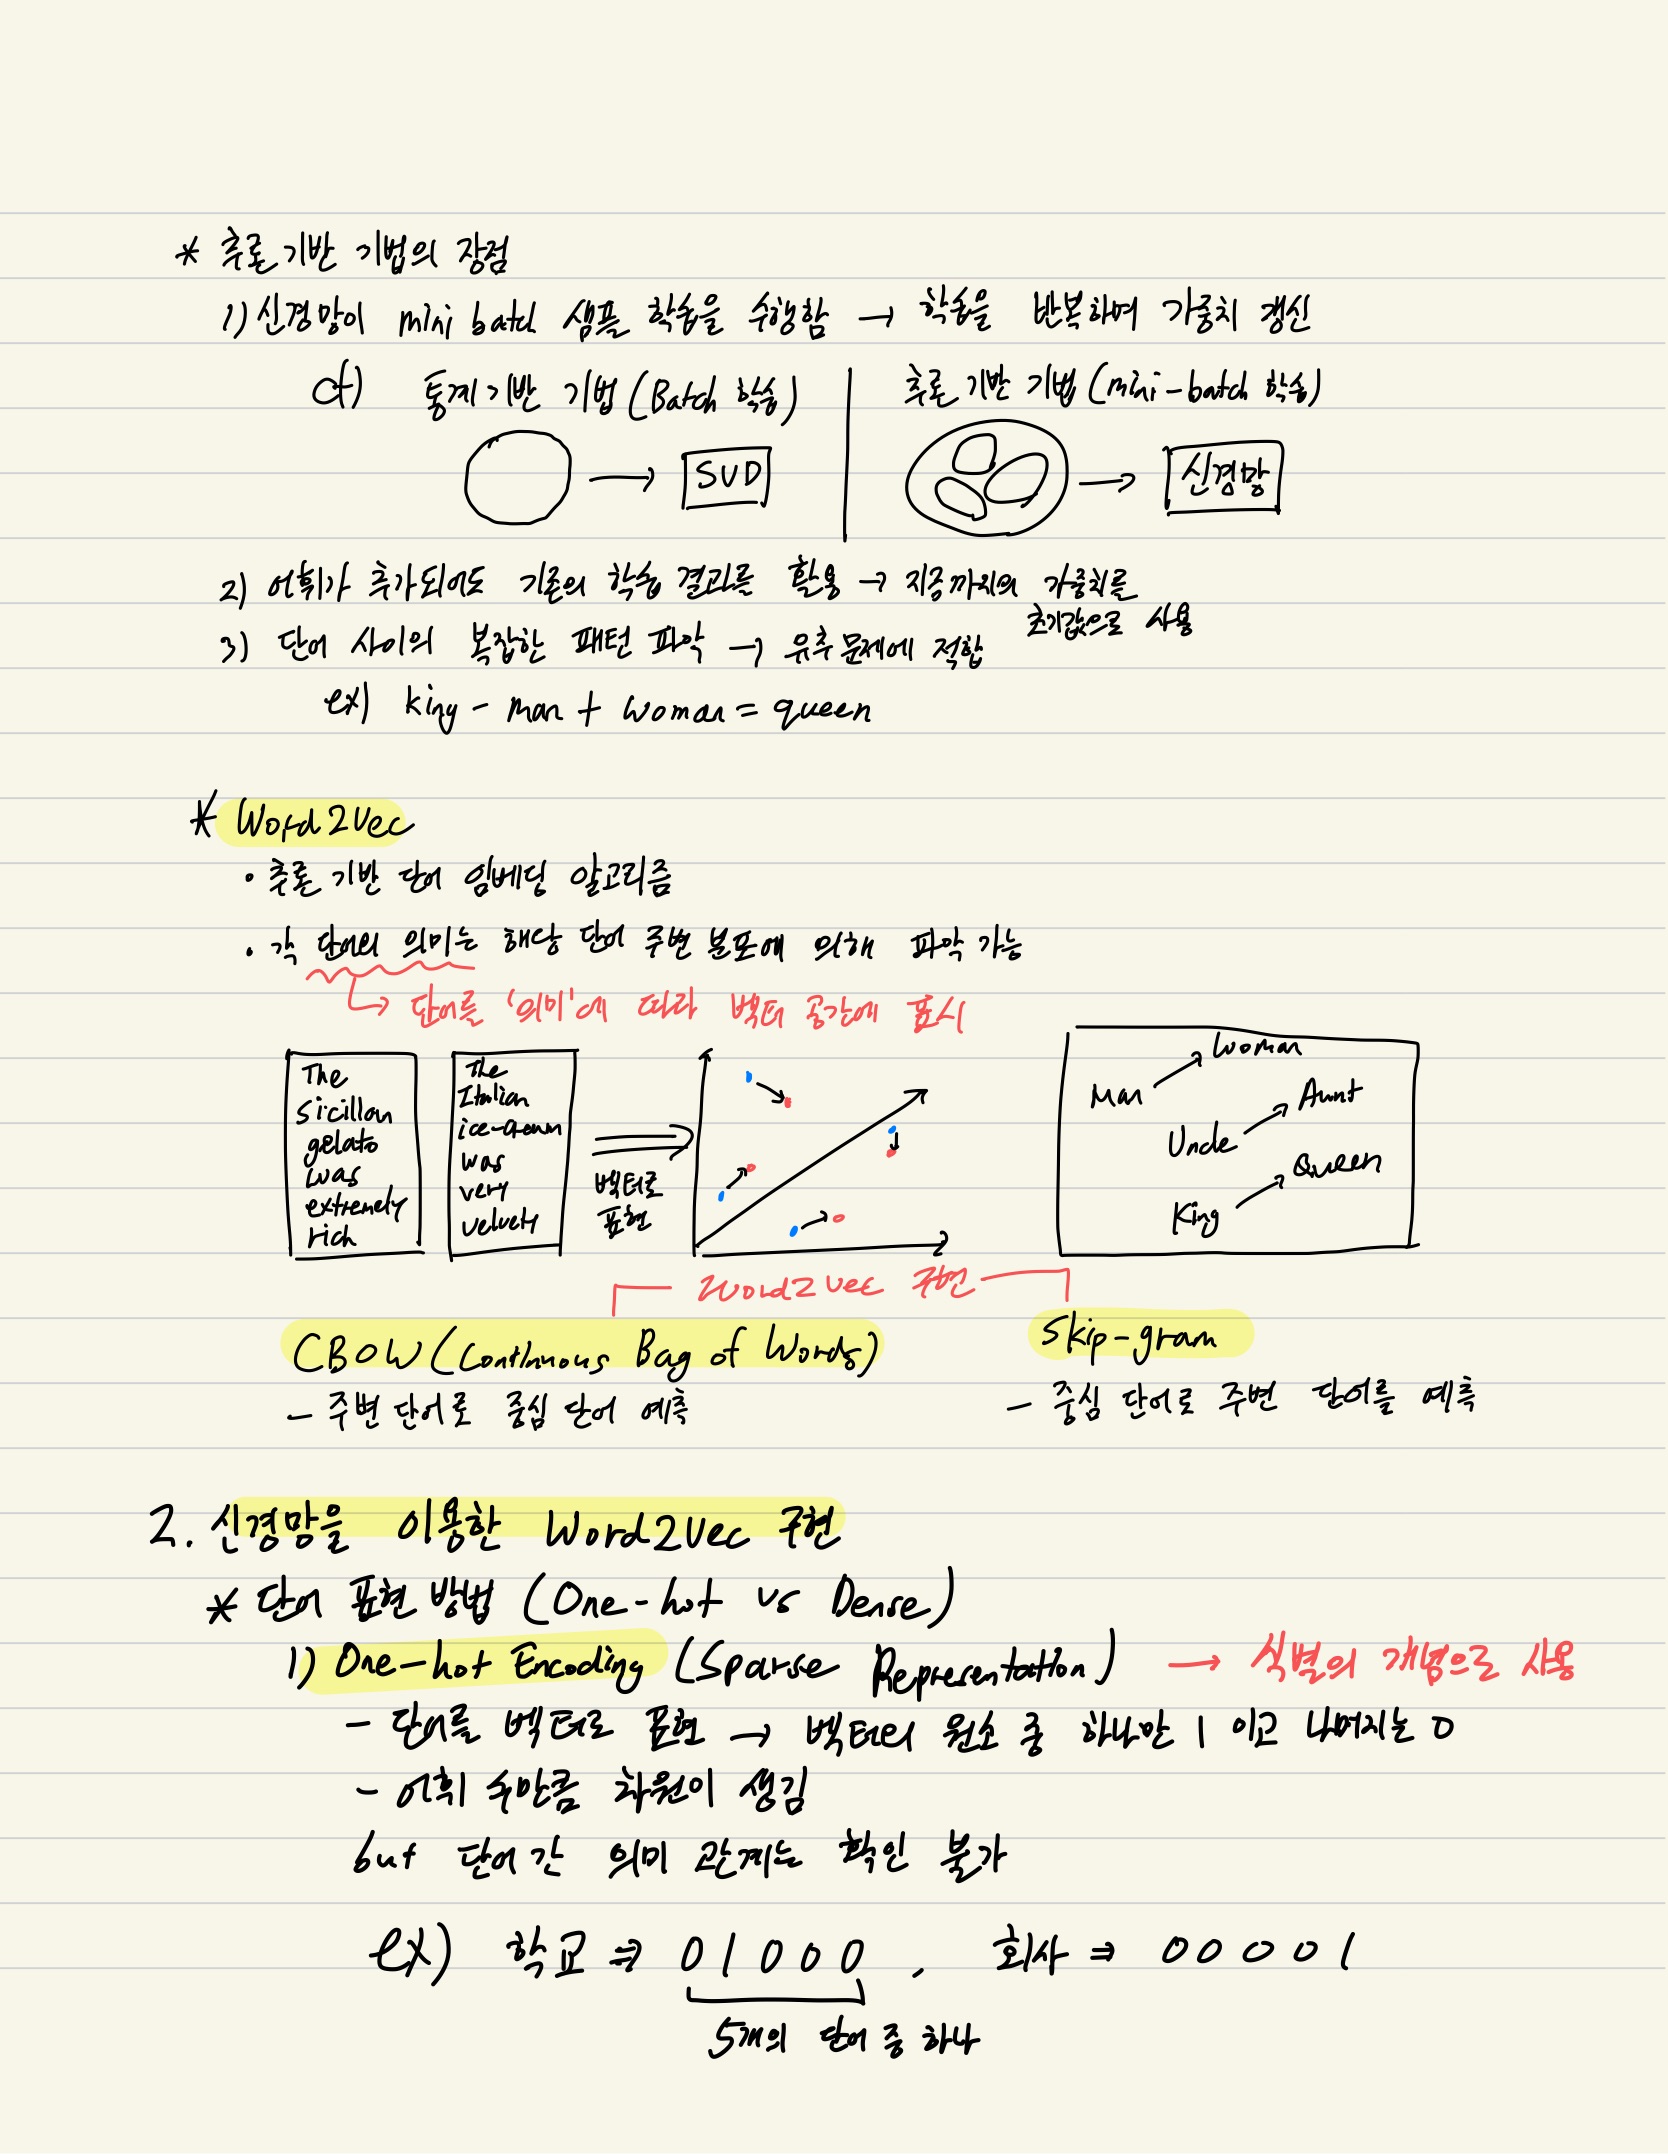 * 추론 기반 기법의 장점
1) 신경망이 mini batch 샘플 학습을 수행함 → 학습을 반복하여 가중치 갱신
cf) 통계 기반 기법 (Batch 학습)
추론 기반 기법 (mini-batch 학습)
→ SVD
→ 신경망
2) 어휘가 추가되어도 기존의 학습 결과를 활용 → 지금까지의 가중치를
초기값으로 사용
3) 단어 사이의 복잡한 패턴 파악 → 유추 문제에 적합
ex) king - man + woman = queen
* Word2Vec
• 추론 기반 단어 임베딩 알고리즘
• 각 단어의 의미는 해당 단어 주변 분포에 의해 파악 가능
↳ 단어를 '의미'에 따라 벡터 공간에 표시
The
Sicillan
gelato
was
extremely
rich
The
Italian
ice-cream
was
very
velvety
벡터로
표현
Man → Woman
Uncle → Aunt
King → Queen
Word2Vec 구현
CBOW (Continuous Bag of Words)
- 주변 단어로 중심 단어 예측
Skip-gram
- 중심 단어로 주변 단어를 예측
2. 신경망을 이용한 Word2Vec 구현
* 단어 표현 방법 (One-hot vs Dense)
1) One-hot Encoding (Sparse Representation) → 식별의 개념으로 사용
- 단어를 벡터로 표현 → 벡터의 원소 중 하나만 1 이고 나머지는 0
- 어휘 수만큼 차원이 생김
but 단어 간 의미 관계는 확인 불가
ex) 학교 ⇒ 0 1 0 0 0 , 회사 ⇒ 0 0 0 0 1
5개의 단어 중 하나